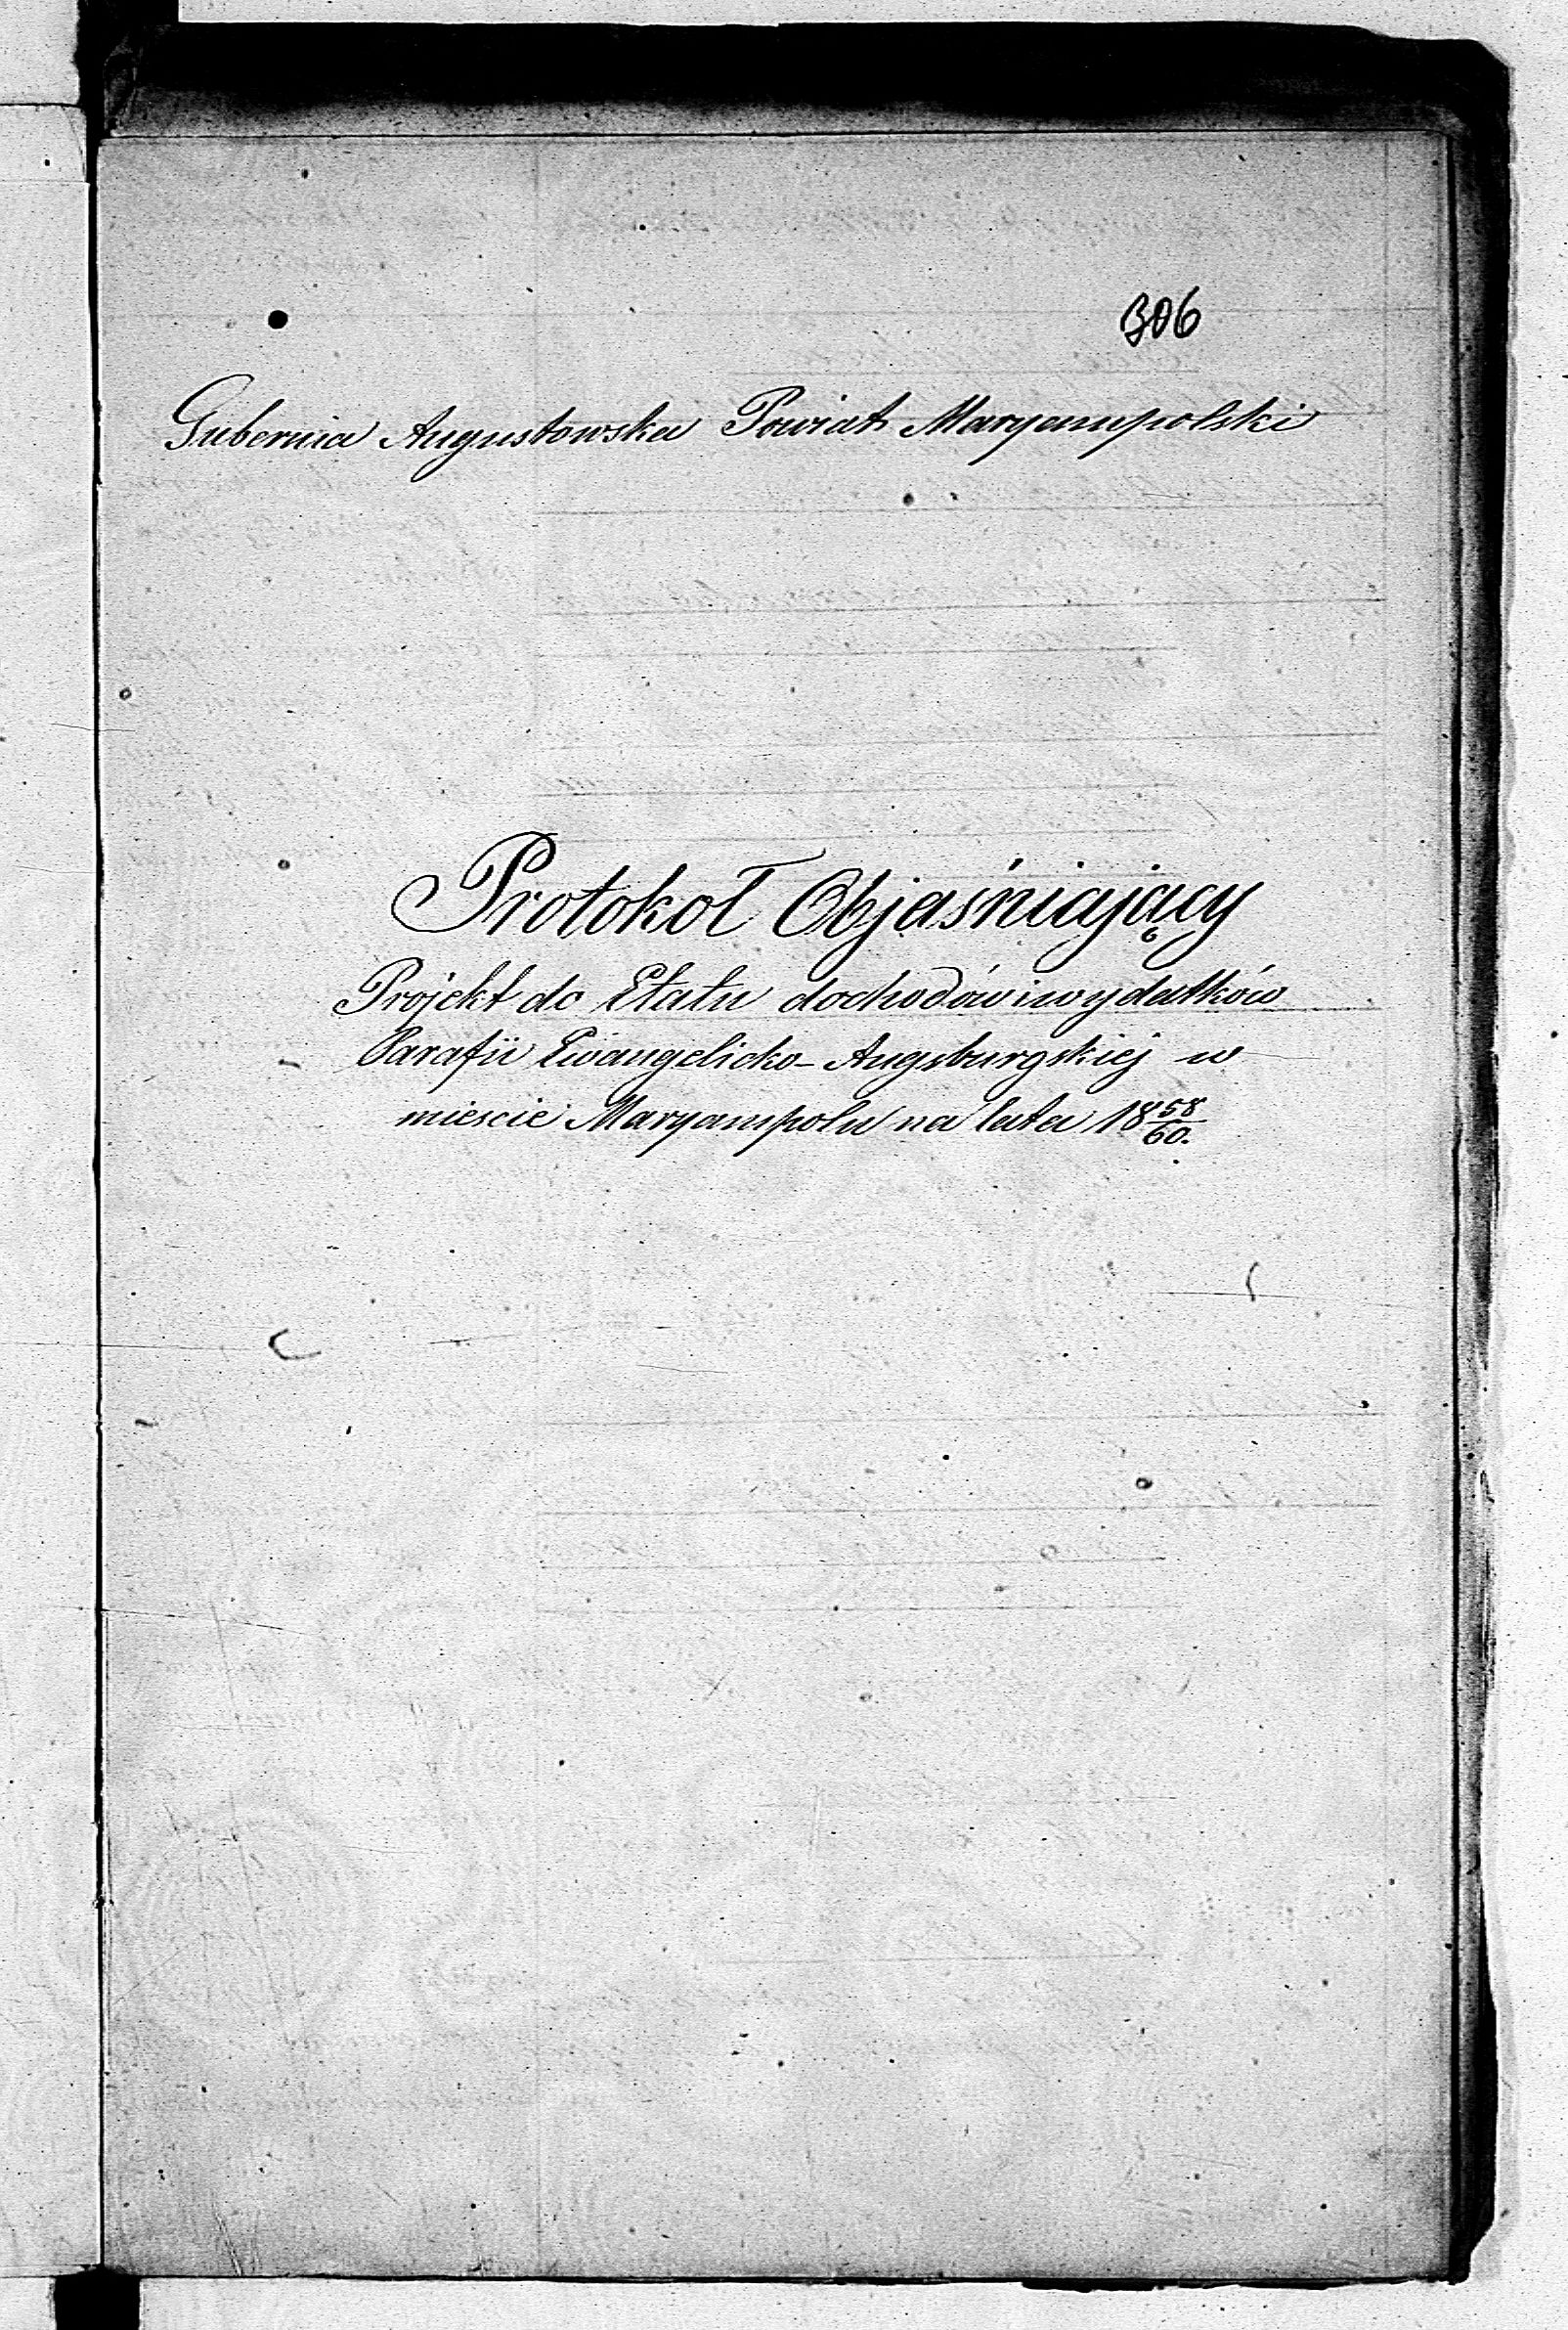 306
Gubernia Augustowska Powiat Maryampolski
Protokoł Objaśniający
Projekt do Etatu dochodów i wydatków
Parafii Ewangelicko-Augsburgskiej w
miescie Maryampolu na lata 18 58/60.